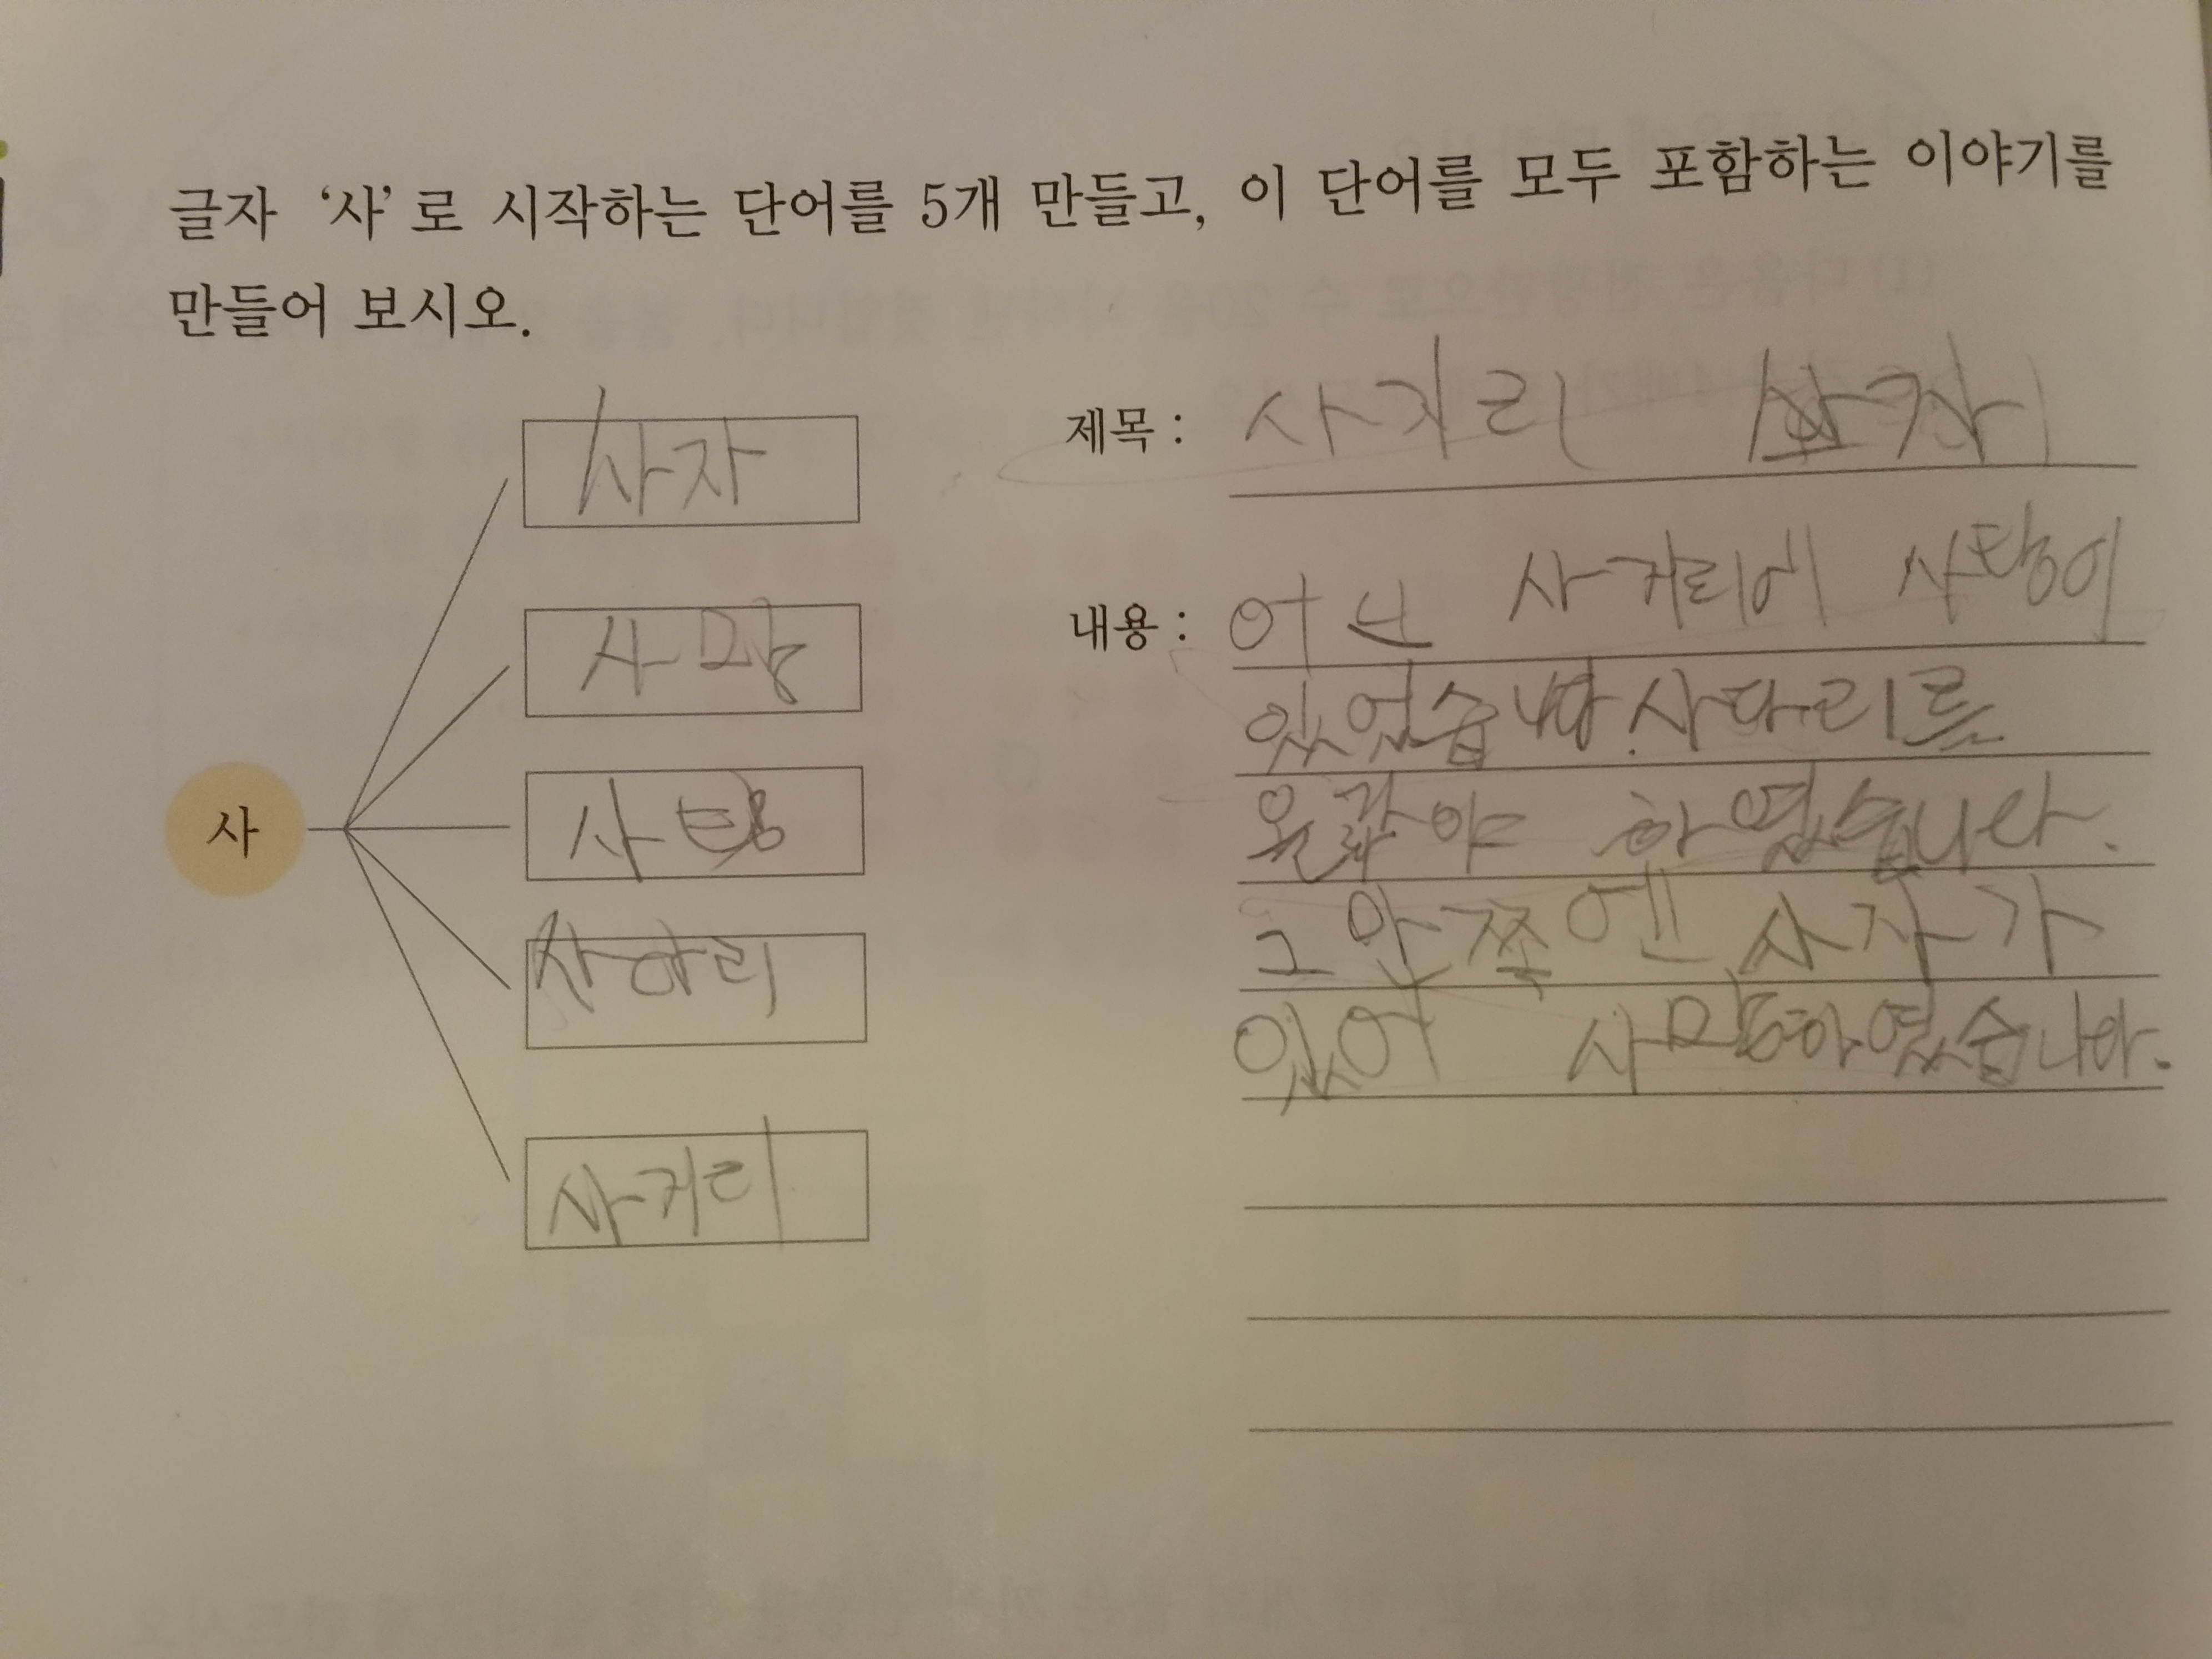 글자 '사'로 시작하는 단어를 5개 만들고, 이 단어를 모두 포함하는 이야기를
만들어 보시오.
사
사자
사망
사탕
사다리
사거리
제목 : 사거리
내용 : 어느 사거리에 사탕이
있었습니다. 사다리를
올라야 하였습니다.
그 안쪽엔 사자가
있어 사망하였습니다.